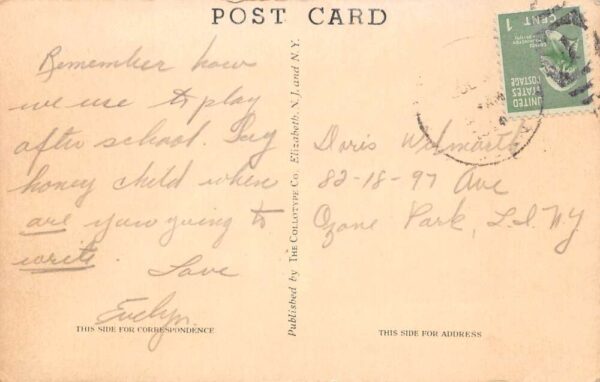 POST CARD
Remember how
we use to play
after school. Say
honey child when
are you going to
write.
Love
Evelyn.
THIS SIDE FOR CORRESPONDENCE
Published by THE COLLOTYPE CO. Elizabeth, N. J. and N.Y.
1 CENT 1
UNITED
STATES
POSTAGE
Doris Wilmarth
82-18-97 Ave
Ozone Park, L.I. NY
THIS SIDE FOR ADDRESS